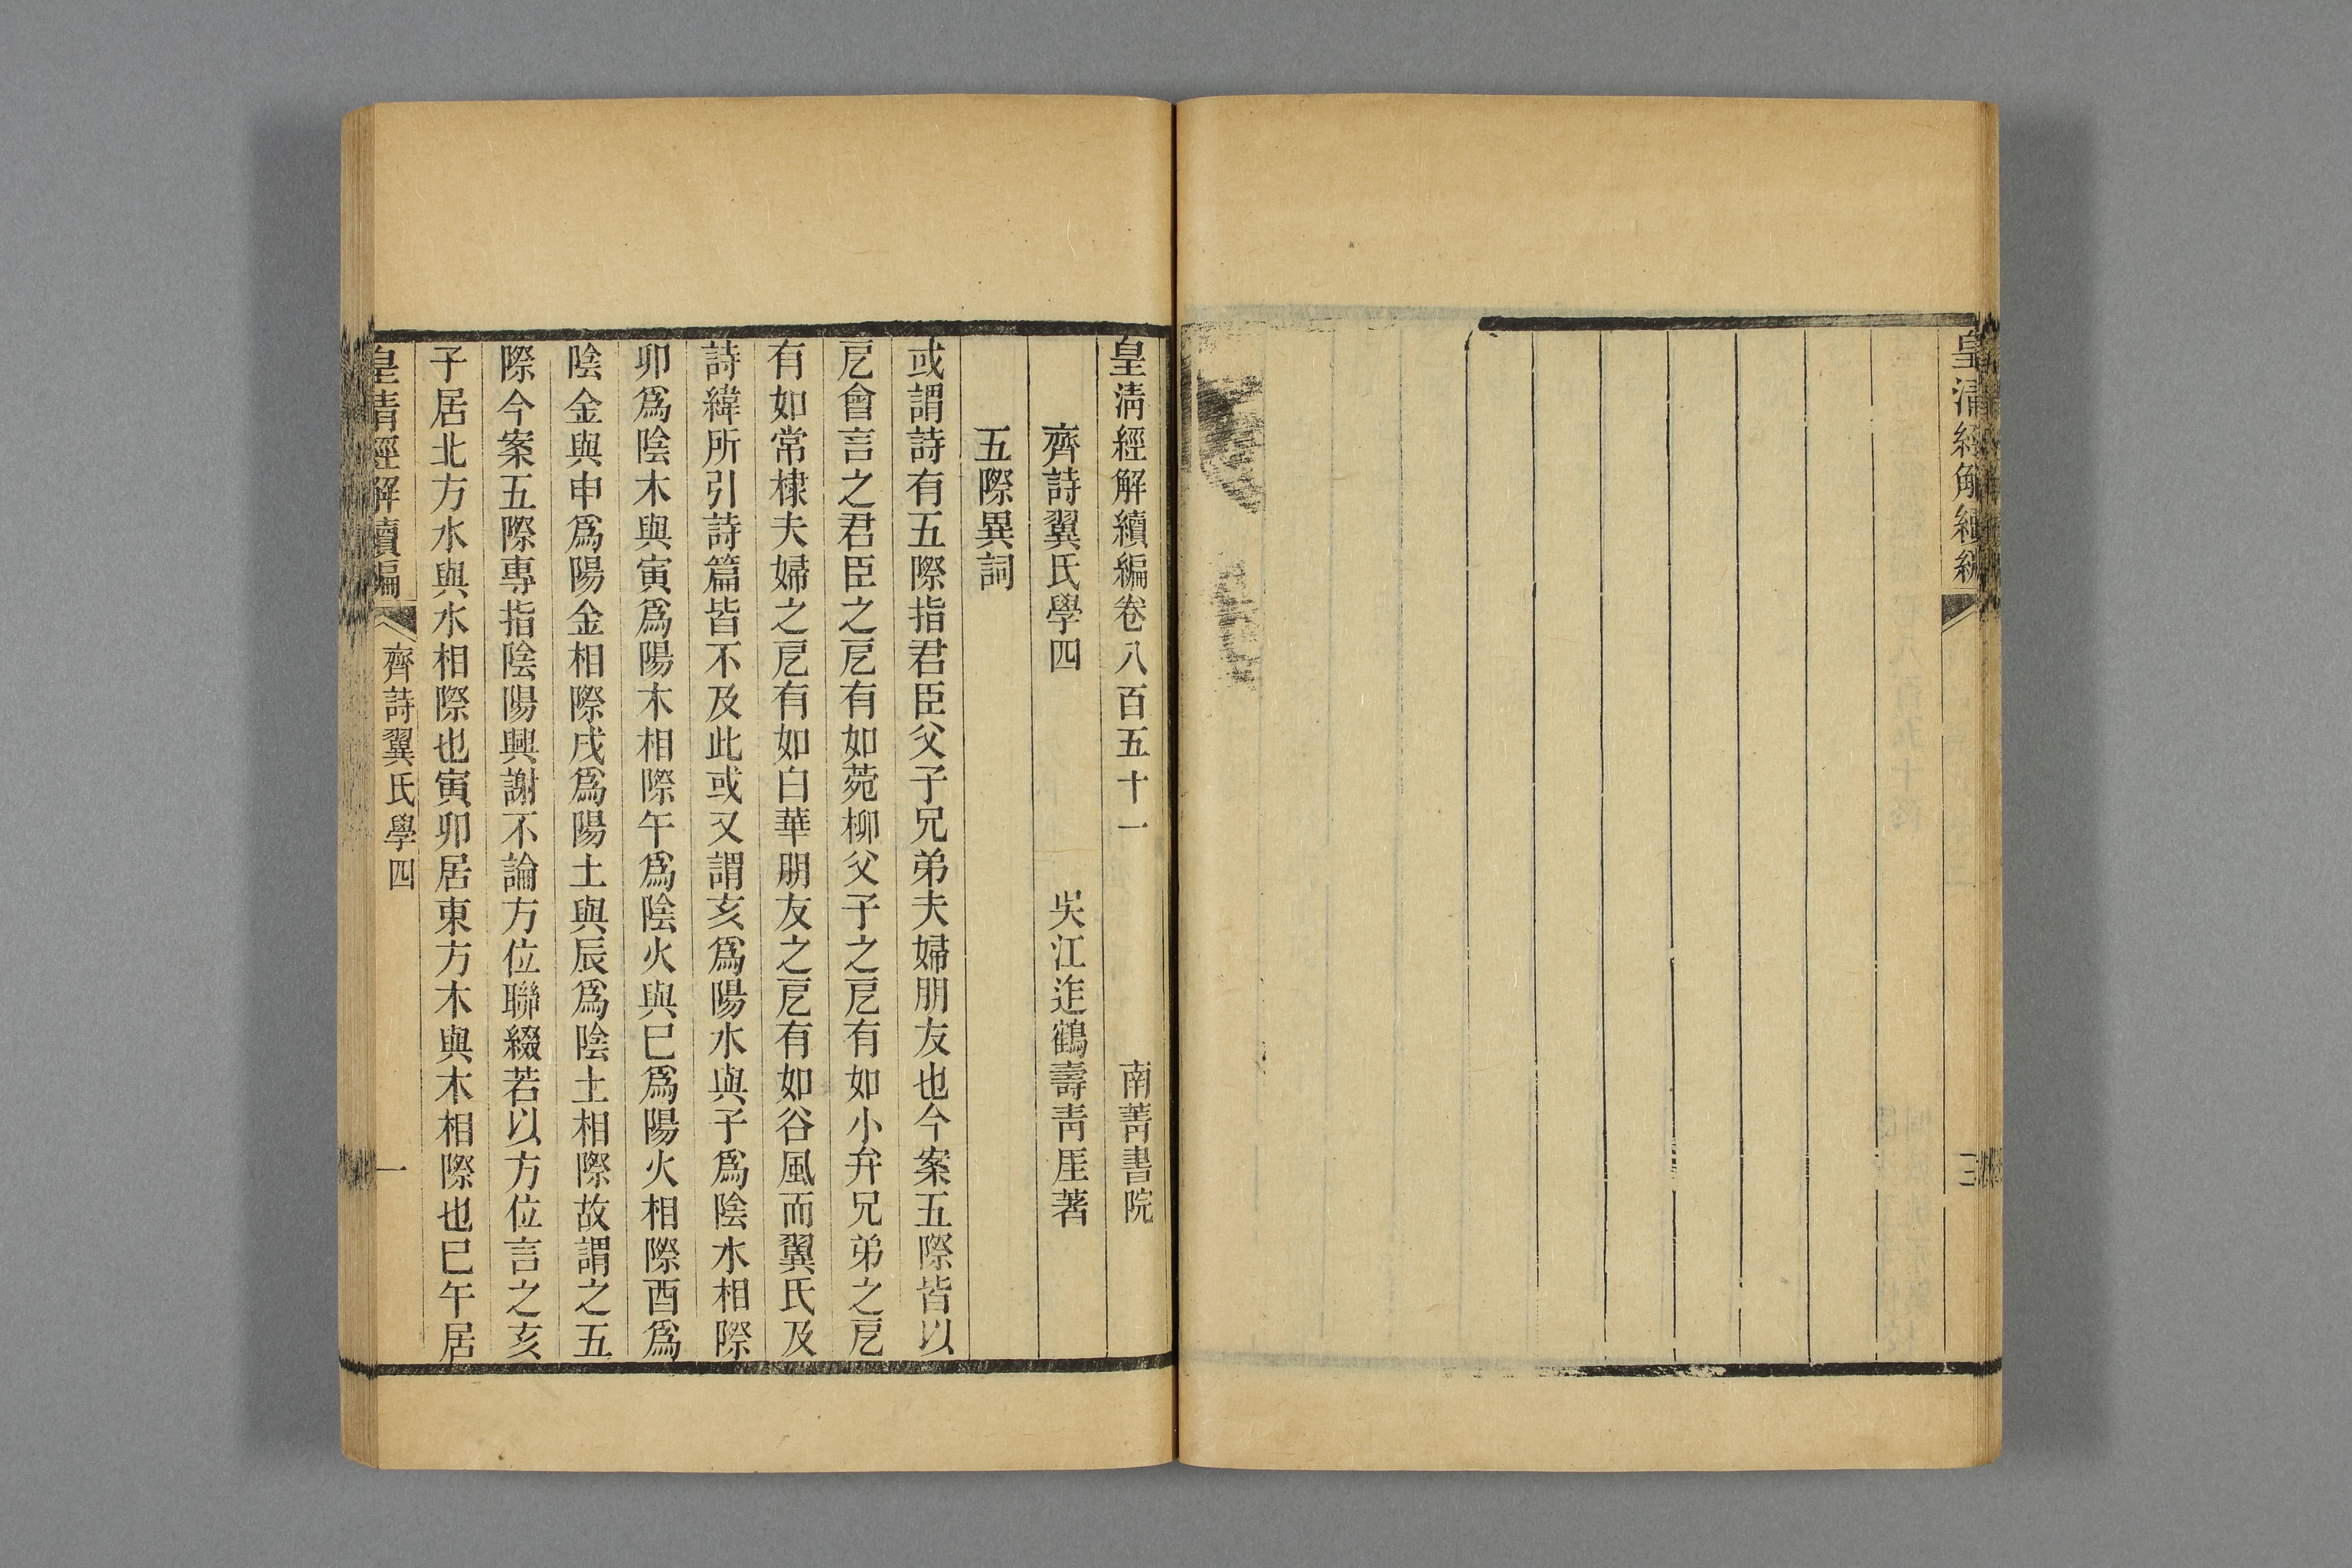 皇清經解續編
三
皇清經解續編卷八百五十一 南菁書院
齊詩翼氏學四 吳江迮鶴壽青厓著
五際異詞
或謂詩有五際指君臣父子兄弟夫婦朋友也今案五際皆以
戹會言之君臣之戹有如菀柳父子之戹有如小弁兄弟之戹
有如常棣夫婦之戹有如白華朋友之戹有如谷風而翼氏及
詩緯所引詩篇皆不及此或又謂亥爲陽水與子爲陰水相際
卯爲陰木與寅爲陽木相際午爲陰火與巳爲陽火相際酉爲
陰金與申爲陽金相際戌爲陽土與辰爲陰土相際故謂之五
際今案五際專指陰陽興謝不論方位聯綴若以方位言之亥
子居北方水與水相際也寅卯居東方木與木相際也巳午居
皇清經解續編 齊詩翼氏學四 一